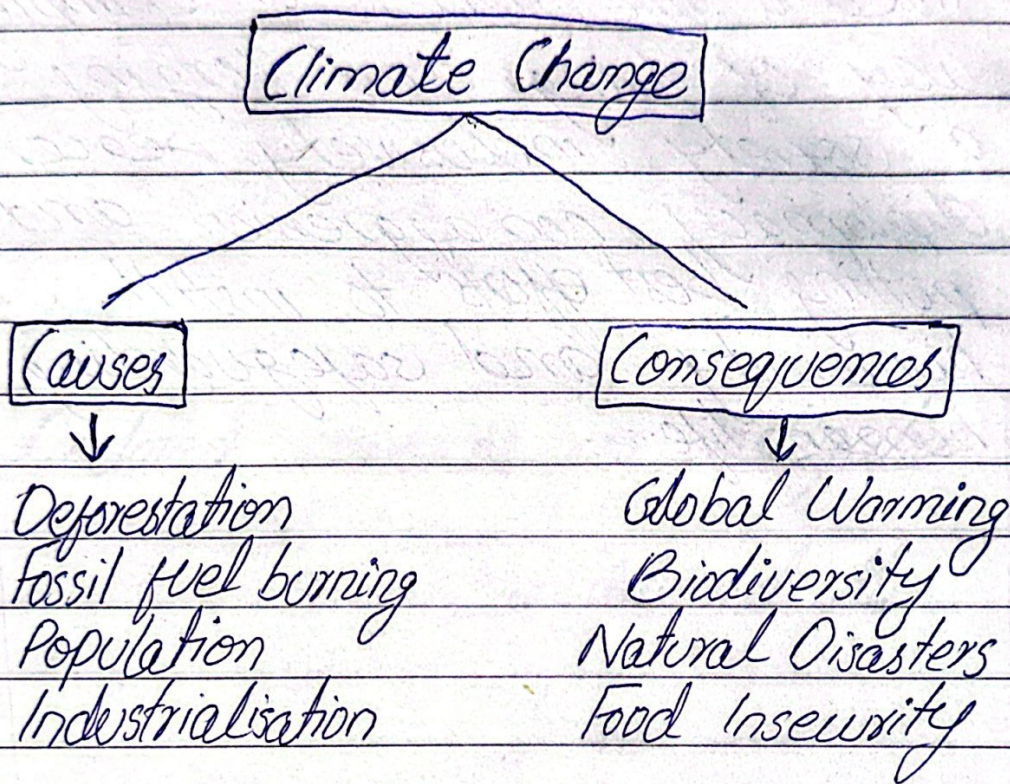 Climate Change
Causes
Deforestation
Fossil fuel burning
Population
Industrialisation
Consequences
Global Warming
Biodiversity
Natural Disasters
Food Insecurity